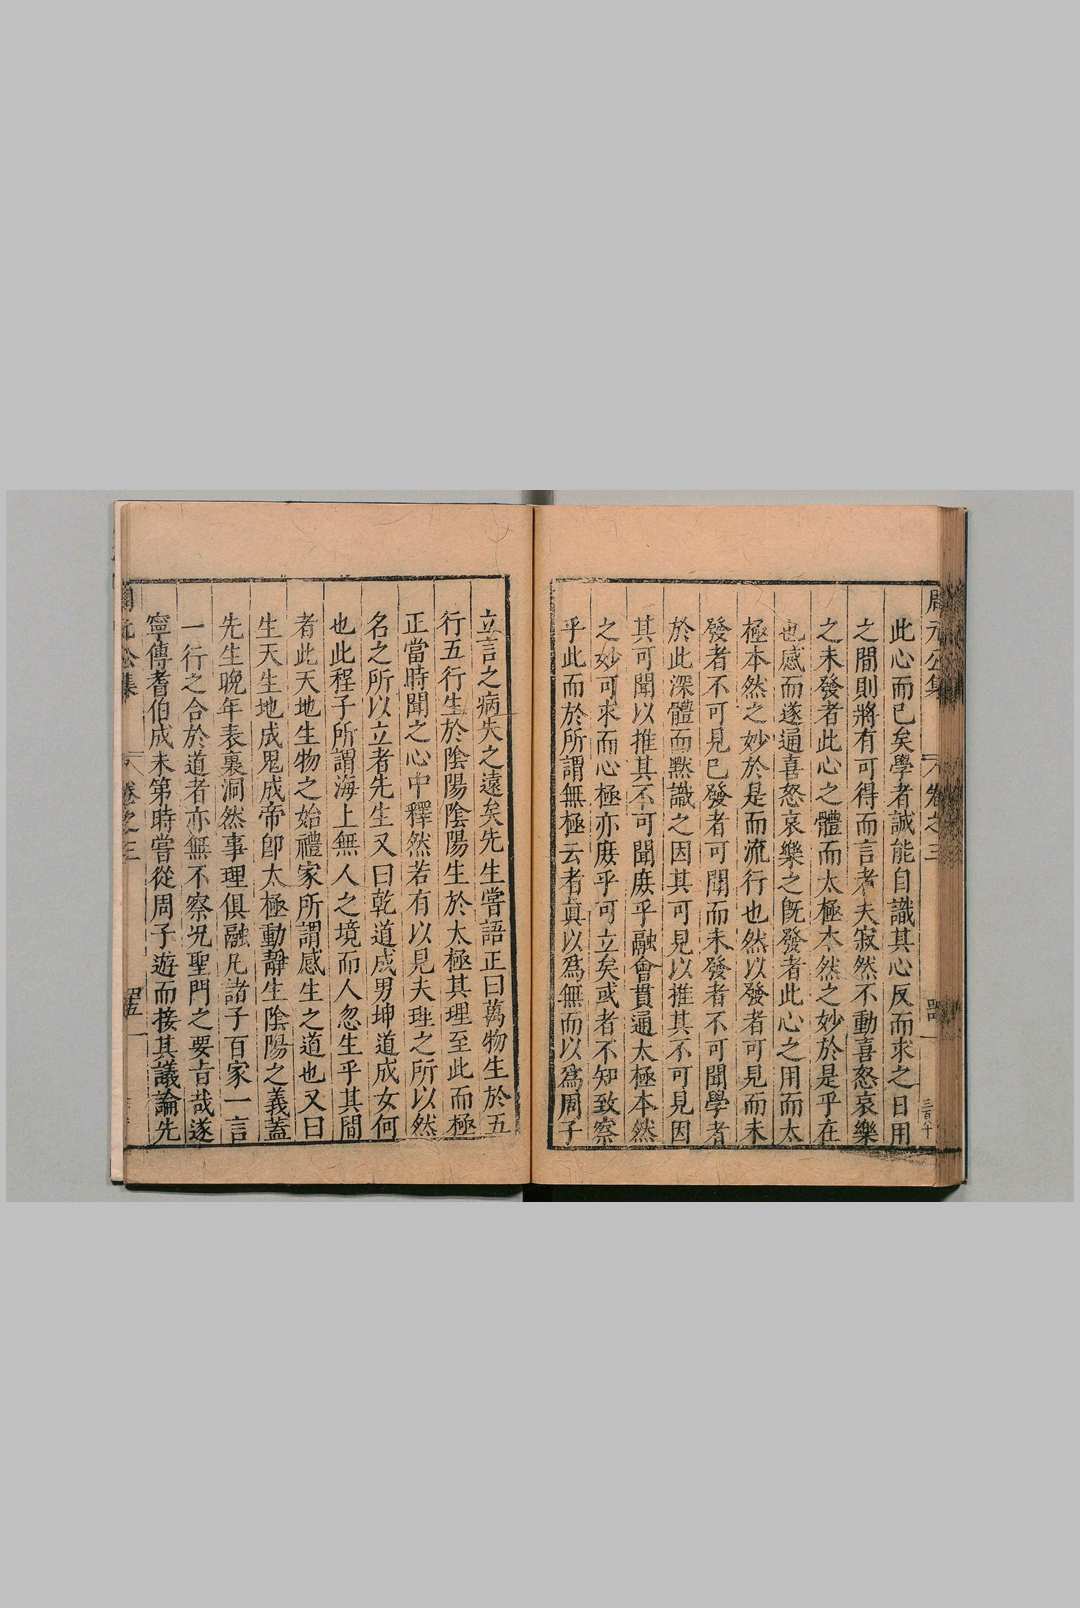 周元公集 卷之三
此心而已矣學者誠能自識其心反而求之日用
之間則將有可得而言者夫寂然不動喜怒哀樂
之未發者此心之體而太極本然之妙於是乎在
也感而遂通喜怒哀樂之旣發者此心之用而太
極本然之妙於是而流行也然以發者可見而未
發者不可見已發者可聞而未發者不可聞學者
於此深體而黙識之因其可見以推其不可見因
其可聞以推其不可聞庻乎融會貫通太極本然
之妙可求而心極亦庻乎可立矣或者不知致察
乎此而於所謂無極云者眞以爲無而以爲周子
立言之病失之遠矣先生嘗語正曰萬物生於五
行五行生於陰陽陰陽生於太極其理至此而極
正當時聞之心中釋然若有以見夫理之所以然
名之所以立者先生又曰乾道成男坤道成女何
也此程子所謂海上無人之境而人忽生乎其間
者此天地生物之始禮家所謂感生之道也又曰
生天生地成鬼成帝卽太極動靜生陰陽之義蓋
先生晚年表裏洞然事理俱融凡諸子百家一言
一行之合於道者亦無不察况聖門之要旨哉遂
寧傳耆伯成未第時嘗從周子遊而接其議論先
周元公集 卷之三